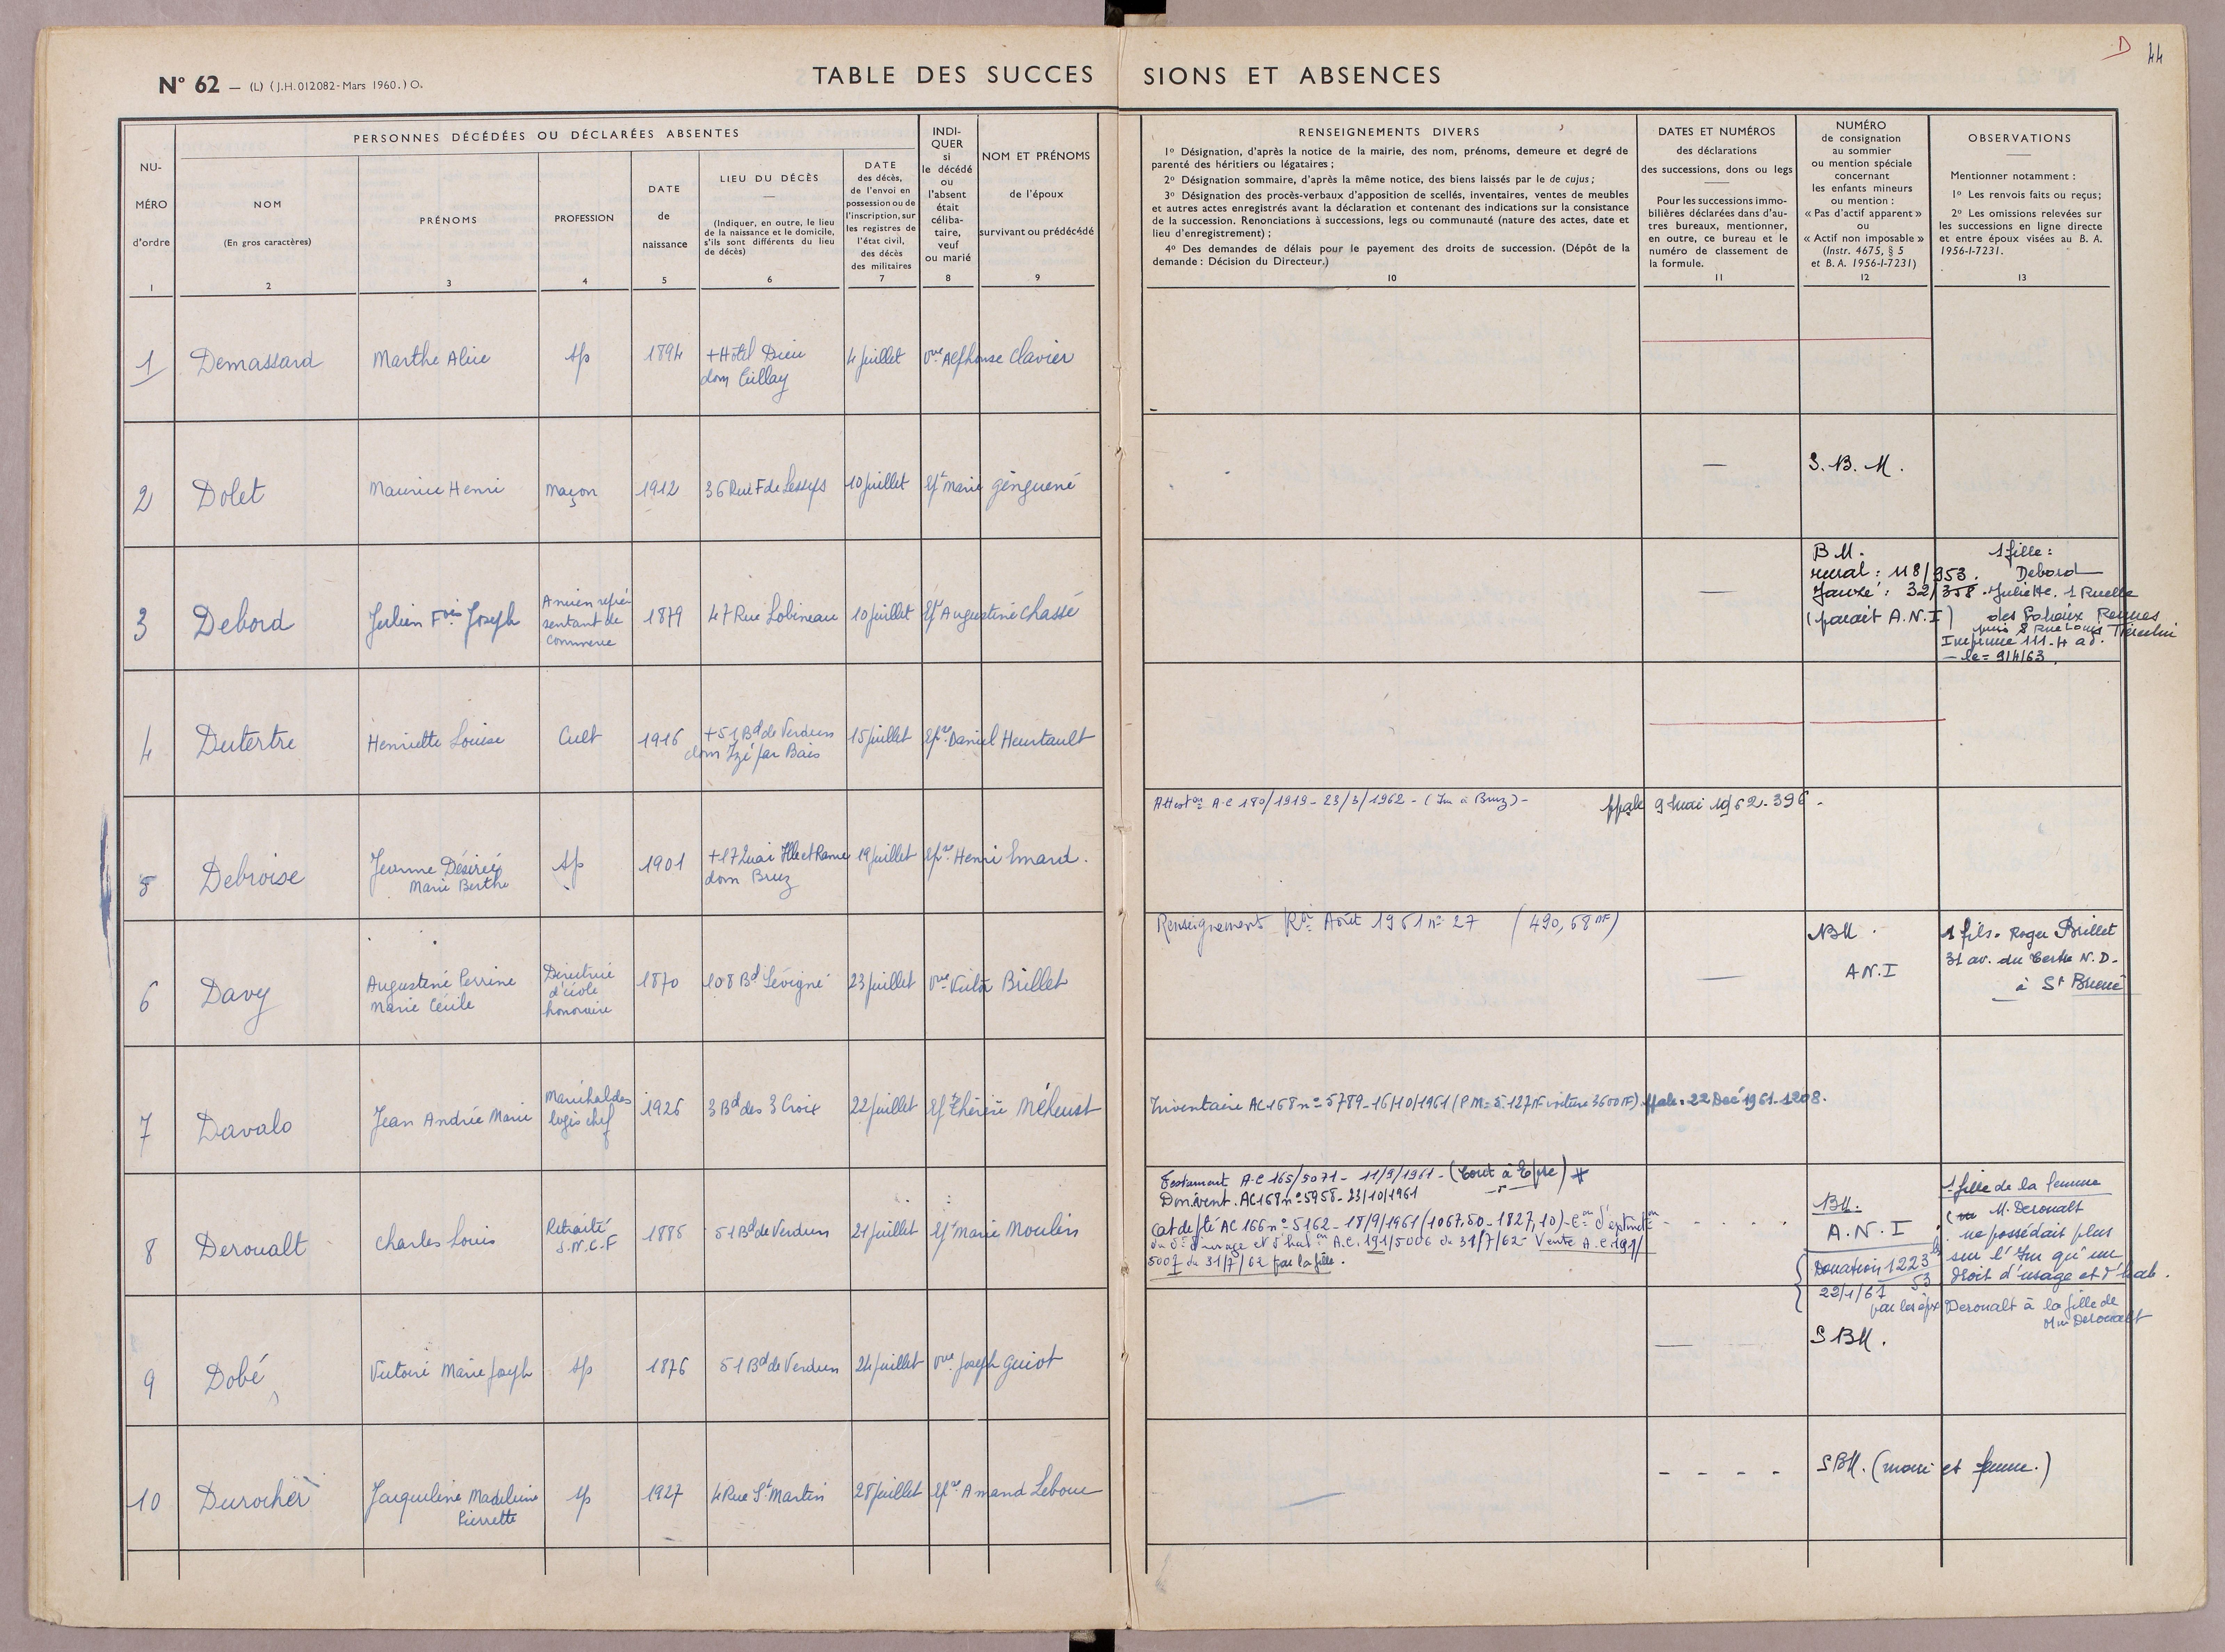 D 44
N° 62 — (L) (J.H. 012082 - Mars 1960.) O.
TABLE DES SUCCES SIONS ET ABSENCES
NU-
MÉRO
d'ordre
1
PERSONNES DÉCÉDÉES OU DÉCLARÉES ABSENTES
NOM
(En gros caractères)
2
PRÉNOMS
3
PROFESSION
4
DATE
de
naissance
5
LIEU DU DÉCÈS
(Indiquer, en outre, le lieu
de la naissance et le domicile,
s'ils sont différents du lieu
de décès)
6
DATE
des décès,
de l'envoi en
possession ou de
l'inscription, sur
les registres de
l'état civil,
des décès
des militaires
7
INDI-
QUER
si
le décédé
ou
l'absent
était
céliba-
taire,
veuf
ou marié
8
NOM ET PRÉNOMS
de l'époux
survivant ou prédécédé
9
RENSEIGNEMENTS DIVERS
1° Désignation, d'après la notice de la mairie, des nom, prénoms, demeure et degré de
parenté des héritiers ou légataires ;
2° Désignation sommaire, d'après la même notice, des biens laissés par le de cujus ;
3° Désignation des procès-verbaux d'apposition de scellés, inventaires, ventes de meubles
et autres actes enregistrés avant la déclaration et contenant des indications sur la consistance
de la succession. Renonciations à successions, legs ou communauté (nature des actes, date et
lieu d'enregistrement) ;
4° Des demandes de délais pour le payement des droits de succession. (Dépôt de la
demande : Décision du Directeur.)
10
DATES ET NUMÉROS
des déclarations
des successions, dons ou legs
Pour les successions immo-
bilières déclarées dans d'au-
tres bureaux, mentionner,
en outre, ce bureau et le
numéro de classement de
la formule.
11
NUMÉRO
de consignation
au sommier
ou mention spéciale
concernant
les enfants mineurs
ou mention :
« Pas d'actif apparent »
ou
« Actif non imposable »
(Instr. 4675, § 5
et B. A. 1956-I-7231)
12
OBSERVATIONS
Mentionner notamment :
1° Les renvois faits ou reçus;
2° Les omissions relevées sur
les successions en ligne directe
et entre époux visées au B. A.
1956-I-7231.
13
1 Demassard Marthe Alice sp 1894 + Hôtel Dieu 4 juillet vve Alphonse Clavier
dom Cuillay
2 Dolet Maurice Henri maçon 1912 36 Rue F de Lesseps 10 juillet Ex Marie Ginguené — S.B.M.
3 Debord Julien Fois Joseph Ancien repré- 1879 47 Rue Lobineau 10 juillet Ex Augustine Chassé —
sentant de
commerce
B M.
rural : 118/953.
Janzé : 32/358.
(parait A.N.I)
1 fille :
Debord
Juliette. 1 Ruelle
des Rennes
puis 8 Rue Louis
Imprimé 111-H ad.
— le = 9/4/63
4 Dutertre Henriette Louise Cult 1916 + 51 Bd de Verdun 15 juillet Epse Daniel Heurtault
dom Izé par Bais
5 Debroise Jeanne Désirée sp 1901 + 17 Quai Ille et Rance 19 juillet Epse Henri Simard.
Marie Berthe dom Bruz
Atteston A.C 180/1919 - 23/3/1962 - (Im à Bruz) - ppale 9 Mai 1962 - 396 -
6 Davy Augustine Perrine Directrice 1870 108 Bd Sévigné 23 juillet vve Victor Brillet
Marie Cécile d'école
honoraire
Renseignement Août 1961 n° 27 (490,68 NF) —
NBM.
A.N.I
1 fils. Roger Brillet
31 av. du Tertre N.D.
à St Brieuc
7 Davalo Jean Andrée Marie Maréchal des 1926 3 Bd des 3 Croix 22 juillet Ex Thérèse Méheust
logis chef
Inventaire AC 168 n° 5789 - 16/10/1961 (P.M = 5.127 NF voiture 3600 NF) ppale = 22 Dec 1961 - 1208.
8 Deroualt Charles Louis Retraité 1886 51 Bd de Verdun 21 juillet Ex Marie Moulin
S.N.C.F
Testament A.C 165/5071 - 11/9/1961 - (tout à Epse) #
AC 168 n° 5958 - 23/10/1961
Cat de pté AC 166 n° 5162 - 18/9/1961 (1067,50 - 1827,10) - Con d'extinction
du dt d'usage et d'habon A.C. 191/5006 du 31/7/62 - Vente A.C 191/
5007 du 31/7/62 par la fille.
BM.
A.N.I
Donation 1223
22/1/61 53
1 fille de la femme
M. Deroualt
ne possédait plus
sur l'Im qu'un
droit d'usage et d'hab.
par les épx Deroualt à la fille de
Mme Deroualt
9 Dobé Victoire Marie Joseph sp 1876 51 Bd de Verdun 24 juillet vve Joseph Guiot — S BM.
10 Durocher Jacqueline Madeleine sp 1927 4 Rue St Martin 28 juillet Epse Amand Leboue
Pierrette
- - - - S BM. (mari et femme.)